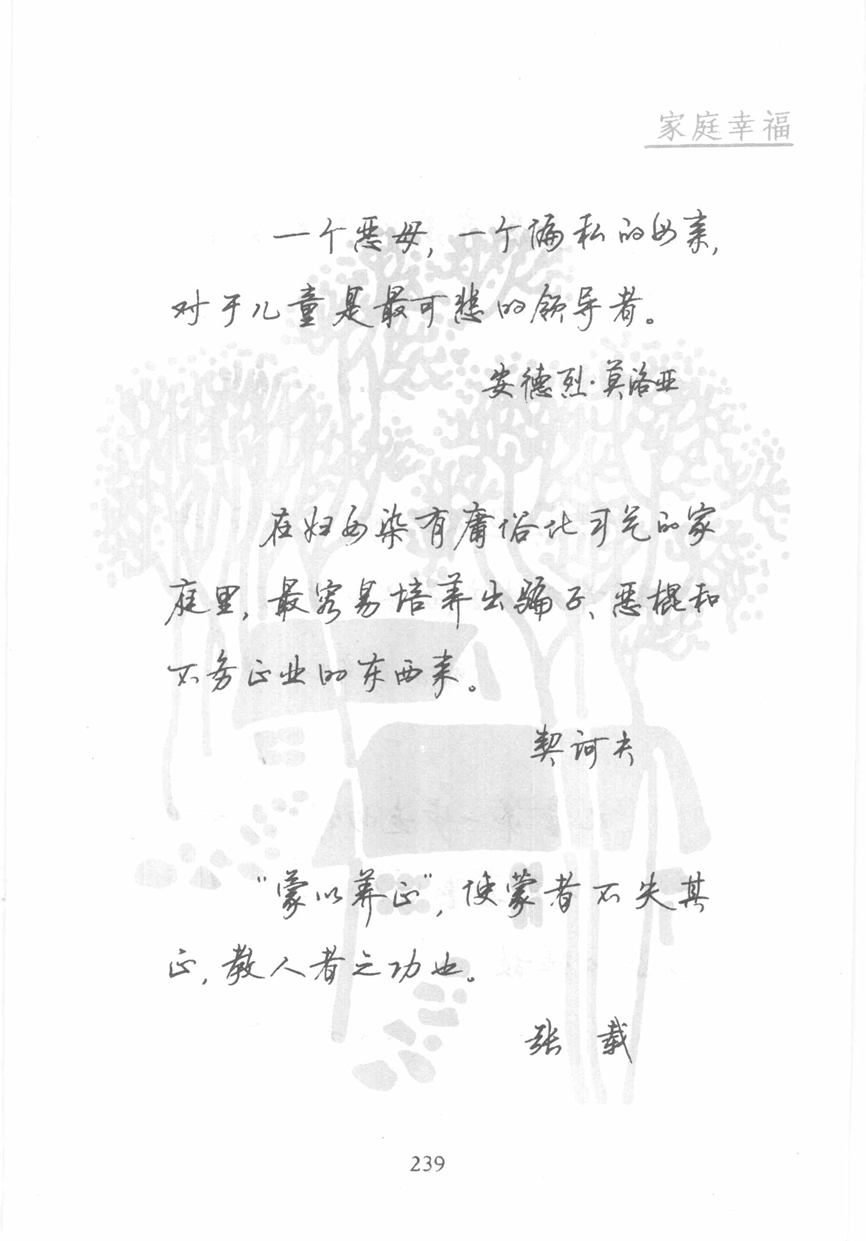 家庭幸福
一个恶母,一个偏私的母亲,
对于儿童是最可悲的领导者。
安德烈·莫洛亚
在妇女染有庸俗化习气的家
庭里,最容易培养出骗子、恶棍和
不务正业的东西来。
契诃夫
“蒙以养正”,使蒙者不失其
正,教人者之功也。
张 载
239